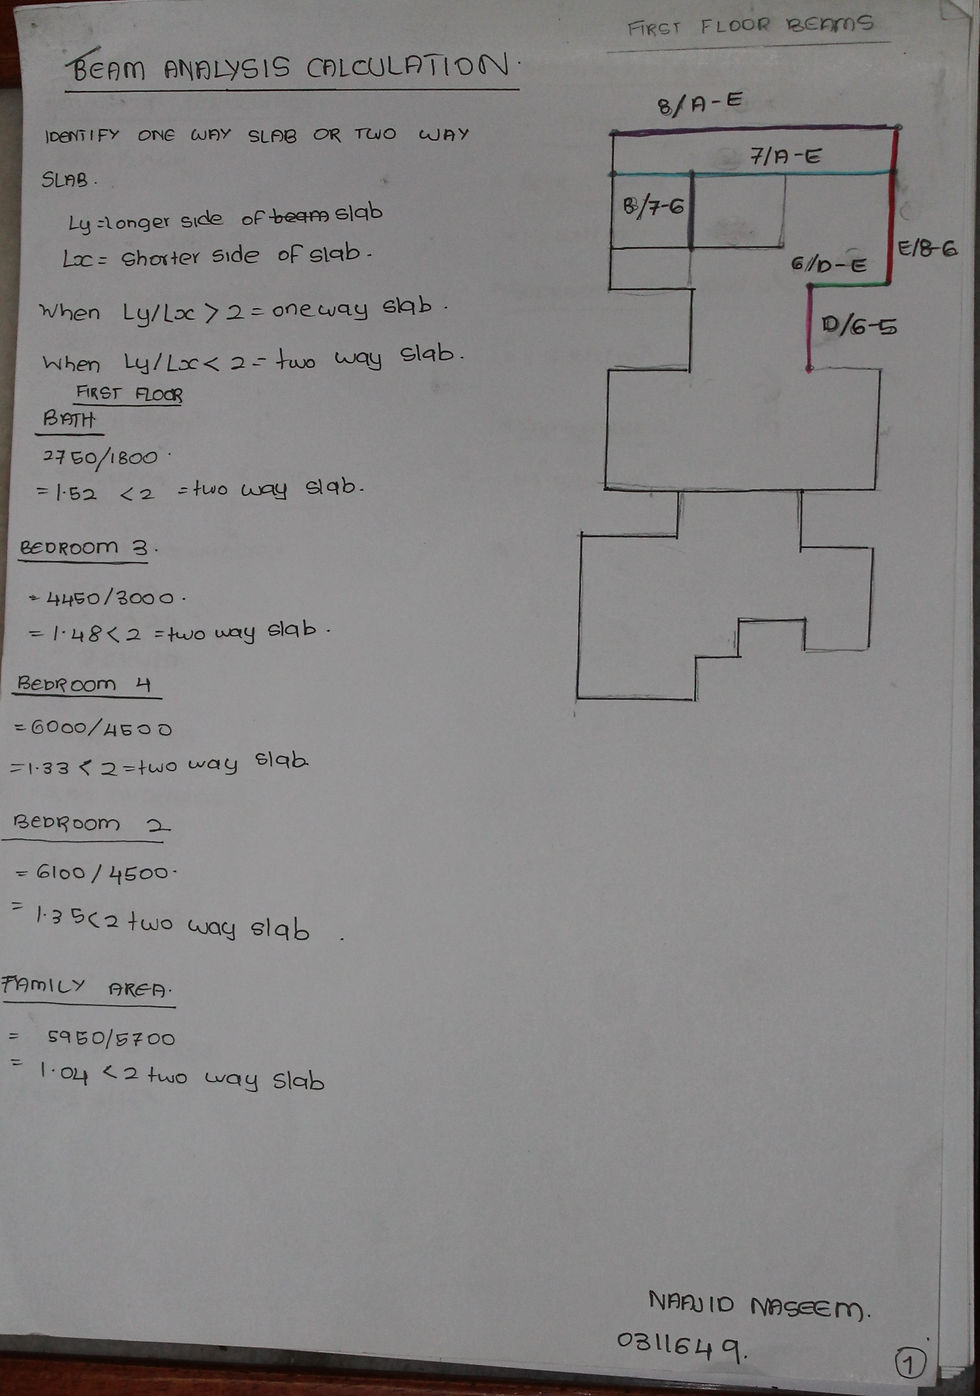 FIRST FLOOR BEAMS
BEAM ANALYSIS CALCULATION.
IDENTIFY ONE WAY SLAB OR TWO WAY
SLAB.
Ly = longer side of beam slab
Lx = Shorter side of slab.
When Ly/Lx > 2 = one way slab.
When Ly/Lx < 2 = two way slab.
FIRST FLOOR
BATH
2750/1800.
= 1.52 < 2 = two way slab.
BEDROOM 3.
= 4450/3000.
= 1.48 < 2 = two way slab.
BEDROOM 4
= 6000/4500
= 1.33 < 2 = two way slab
BEDROOM 2
= 6100/4500.
= 1.35 < 2 two way slab.
FAMILY AREA.
= 5950/5700
= 1.04 < 2 two way slab
8/A-E
7/A-E
B/7-6
E/8-6
6/D-E
D/6-5
NAAJID NASEEM.
0311649.
1